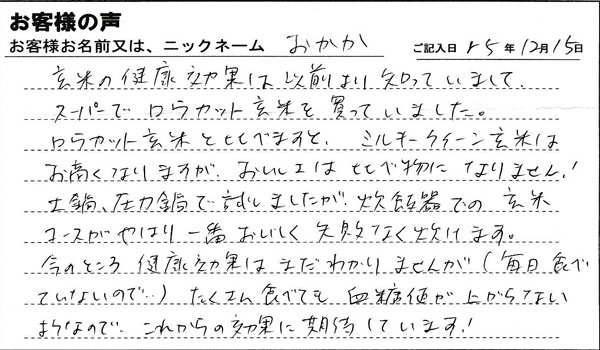 お客様の声
お客様お名前又は、ニックネーム おかか ご記入日 25年12月15日
玄米の健康効果は以前より知っていまして、
スーパーでロウカット玄米を買っていました。
ロウカット玄米と比べますと、ミルキークイーン玄米は
お高くなりますが、おいしさは比べ物になりません!
土鍋、圧力鍋で試しましたが、炊飯器での玄米
コースがやはり一番おいしく失敗なく炊けます。
今のところ健康効果はまだわかりませんが(毎日食べ
ていないので…)たくさん食べても血糖値が上がらない
ようなので、これからの効果に期待しています!